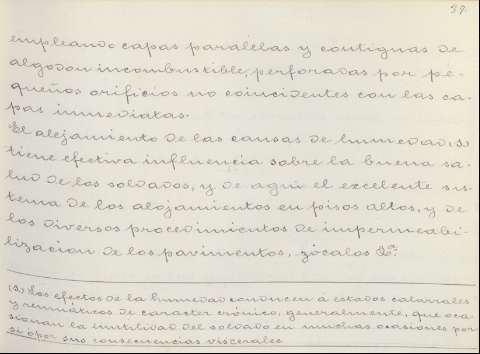 39.
empleando capas paralelas y contiguas de
algodon incombustible, perforadas por pe-
queños orificios no coincidentes con las ca-
pas inmediatas.
El alejamiento de las causas de humedad (1)
tiene efectiva influencia sobre la buena sa-
lud de los soldados, y de aquí el excelente sis-
tema de los alojamientos en pisos altos, y de
los diversos procedimientos de impermeabi-
lizacion de los pavimentos, zócalos &ª.
(1) Los efectos de la humedad conducen á estados catarrales
y reumáticos de caracter crónico, generalmente, que oca-
sionan la inutilidad del soldado en muchas ocasiones por
si ó por sus consecuencias viscerales